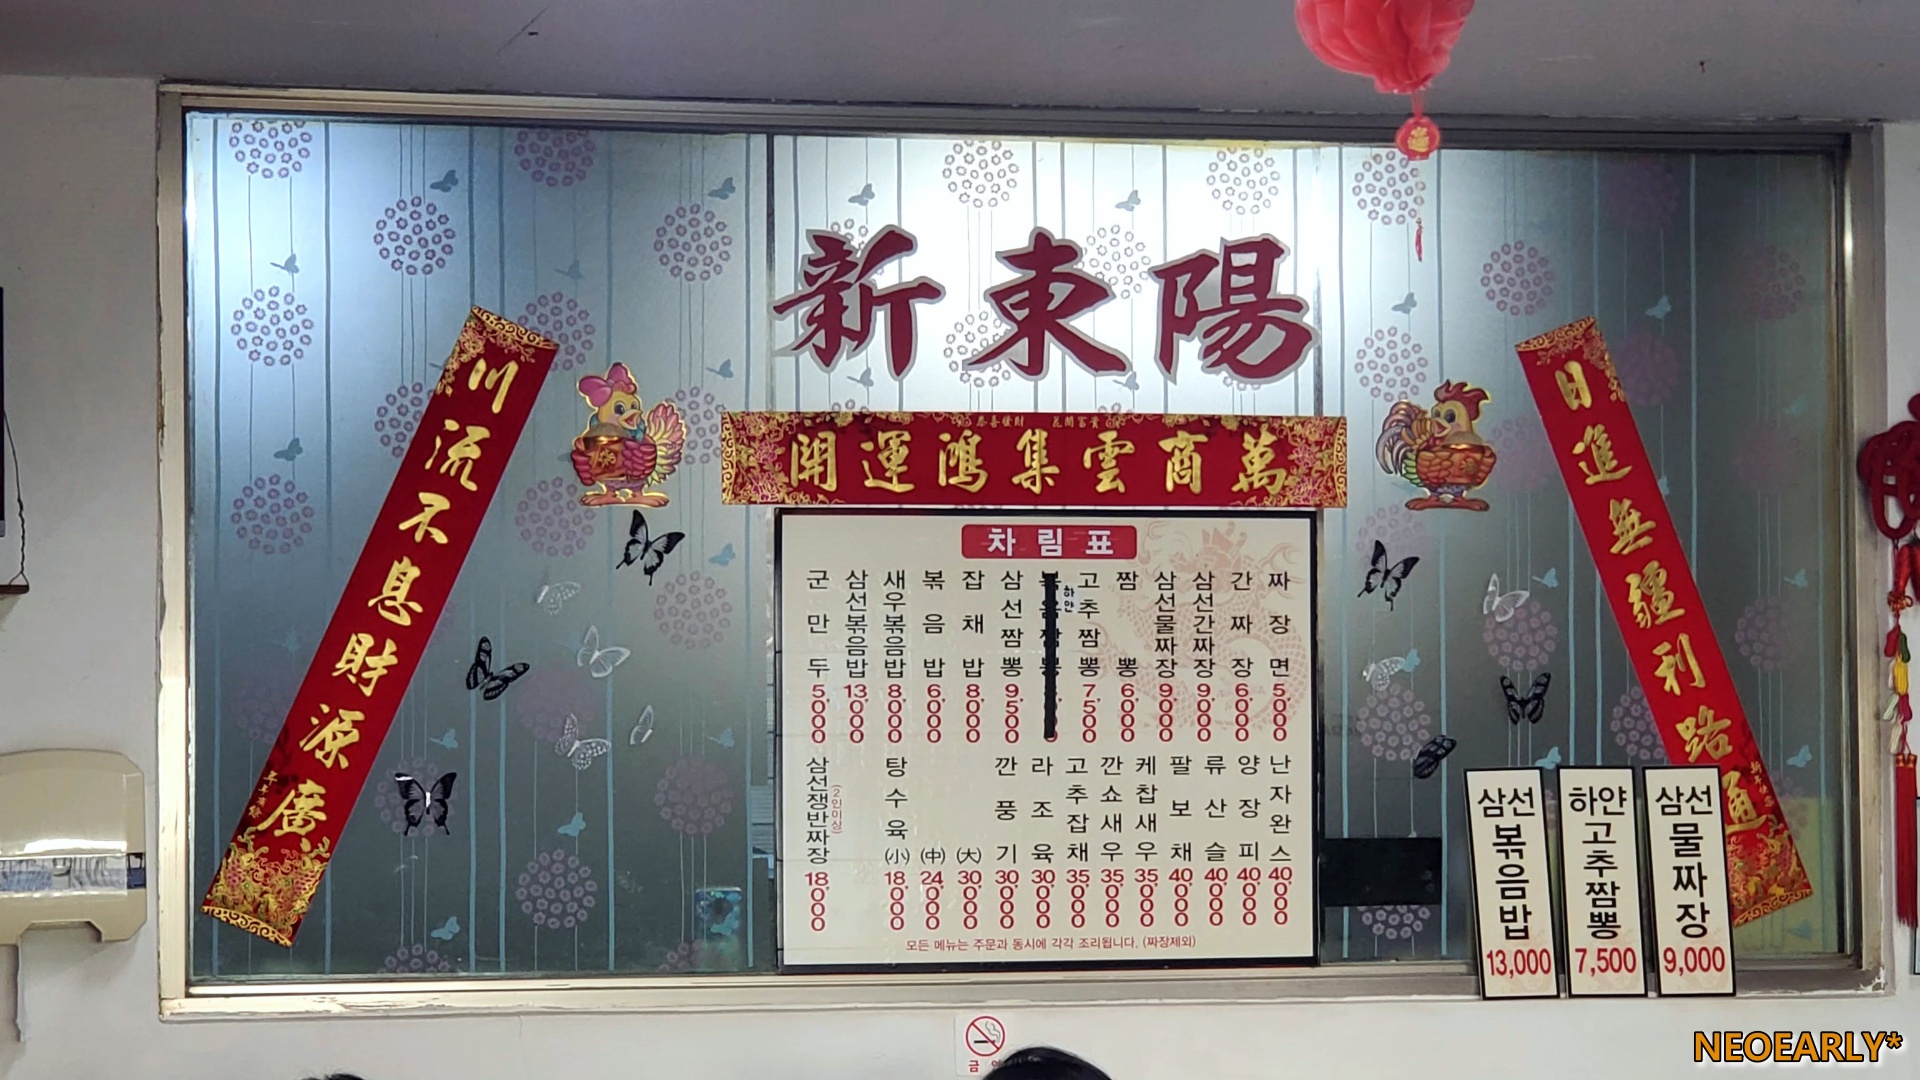 新東陽
恭喜發財 花開富貴
開運鴻集雲商萬
川流不息財源廣
日進無疆利路通
차림표
짜장면 5,000
간짜장 6,000
삼선간짜장 9,000
삼선물짜장 9,000
짬뽕 6,000
하얀
고추짬뽕 7,500
삼선짬뽕 9,500
잡채밥 8,000
볶음밥 6,000
새우볶음밥 8,000
삼선볶음밥 13,000
군만두 5,000
난자완스 40,000
양장피 40,000
류산슬 40,000
팔보채 40,000
케찹새우 35,000
깐쇼새우 35,000
고추잡채 35,000
라조육 30,000
깐풍기 30,000
탕수육
(大) 30,000
(中) 24,000
(小) 18,000
삼선쟁반짜장 (2인이상) 18,000
모든 메뉴는 주문과 동시에 각각 조리됩니다. (짜장제외)
삼선볶음밥
13,000
하얀고추짬뽕
7,500
삼선물짜장
9,000
NEOEARLY*